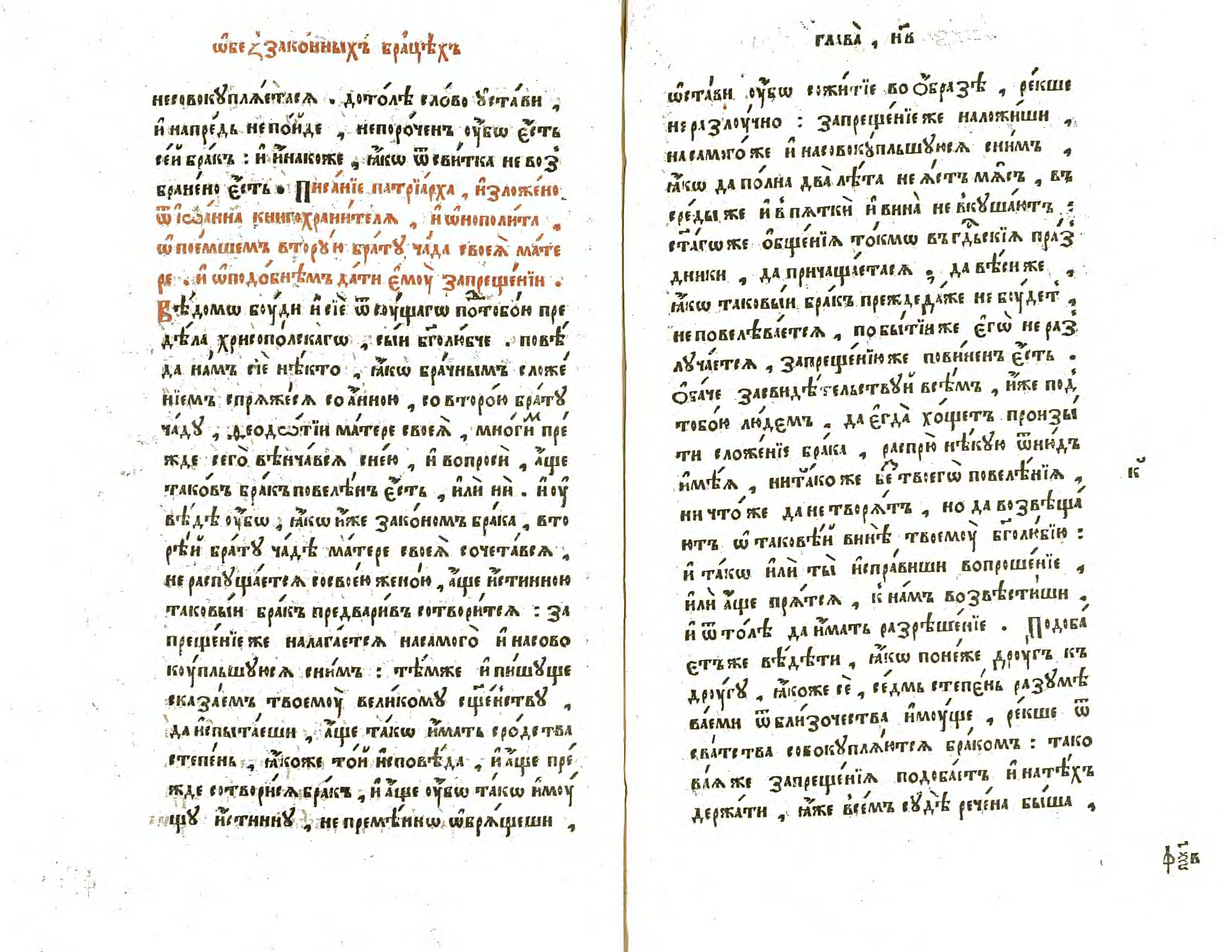 ѡ҆беззако́нныхъ бра́цѣхъ
несовокꙋплѧ́етсѧ . дото́лѣ сло́во ᲂу҆ста́ви ,
и҆ напре́дь не по́йде , непоро́ченъ ᲂу҆́бѡ є҆́сть
се́й бра́къ : и҆ и҆́накоже , ꙗ҆́кѡ ѿ сви́тка не воз
бране́но є҆́сть . Писа́нїе патрїа́рха , и҆зложе́но
ѿ їѡа́нна книгохрани́телѧ , и҆ ѡ҆нополи́та ,
ѡ҆ пое́мшемъ втору́ю бра́тꙋ ча́да своеѧ̀ ма́те
ре . и҆ ѡ҆ подо́бнѣмъ да́ти є҆мꙋ̀ запреще́нїи .
Вѣ́домѡ бꙋ́ди и҆ сїѐ ѿ сꙋ́щагѡ под̾ тобо́ю пре
дѣ́ла хрисопо́лскагѡ , сы́й бг҃олю́бче . повѣ́
да на́мъ сїѐ нѣ́кто , ꙗ҆́кѡ бра́чнымъ сложе́
нїемъ спрѧже́сѧ со а҆́нною , со второ́ю бра́тꙋ
ча́дꙋ , деодѡ́тїи ма́тере своеѧ̀ , мно́гим пре́
жде сего̀ вѣнча́всѧ с не́ю , и҆ вопросѝ , а҆́ще
тако́въ бра́къ повелѣ́нъ є҆́сть , и҆лѝ нѝ . и҆ ᲂу҆
вѣ́дѣ ᲂу҆́бѡ , ꙗ҆́кѡ и҆́же зако́номъ бра́ка , вто
рѣ́й бра́тꙋ ча́дѣ ма́тере своеѧ̀ сочета́всѧ ,
не распꙋща́етсѧ со свое́ю жено́ю , а҆́ще и҆́стинною
таковы́й бра́къ предвари́въ сотвори́тсѧ : за
преще́нїе же налага́етсѧ на самого̀ и҆ на сово
кꙋ́пльшꙋюсѧ с ни́мъ : тѣ́мже и҆ пи́шꙋще
ска́заемъ твоемꙋ̀ вели́комꙋ сщ҃е́нствꙋ ,
да и҆спыта́еши , а҆́ще та́кѡ и҆́мать сро́дства
степе́нь , ꙗ҆́коже то́й и҆сповѣ́да , и҆ а҆́ще пре́
жде сотвори́сѧ бра́къ , и҆ а҆́ще ᲂу҆́бѡ та́кѡ и҆мꙋ́
щꙋ и҆́стиннꙋ , не премѣ́ннѡ ѡ҆брѧ́щеши ,
глава̀ , н҃в
ѡ҆ста́ви ᲂу҆́бѡ сожи́тїе во ѻ҆́бразѣ , ре́кше
не разлꙋ́чно : запреще́нїе же наложи́ши ,
на самого́ же и҆ на совокꙋ́пльшꙋюсѧ с ни́мъ ,
ꙗ҆́кѡ да по́лна два̀ лѣ́та не ꙗ҆́стъ мѧ́съ , въ
сре́ды же и҆ в пѧ́тки и҆ вина̀ не вкꙋша́ютъ :
ст҃а́гѡ же ѻ҆бще́нїѧ то́кмѡ въ гдⷭ҇ьскїѧ пра́з
дники , да причаща́етсѧ , да вѣ́си же ,
ꙗ҆́кѡ таковы́й бра́къ пре́жде да́же не бꙋ́детъ ,
не повелѣва́етсѧ , по бы́тїи же є҆гѡ̀ не раз
лꙋча́етсѧ , запреще́нїю же пови́ненъ є҆́сть .
Ѻ҆ба́че засвидѣ́тельствꙋй всѣ́мъ , и҆́же под
тобо́ю лю́демъ , да є҆гда̀ хо́щетъ произы
ти сложе́нїе бра́ка , распрю̀ нѣ́кꙋю ѿню́дъ
и҆мѣ́ѧ , ни та́ко же без̾ твоегѡ̀ повелѣ́нїѧ ,
ничто́же да не творѧ́тъ , но да возвѣща́
ютъ ѡ҆ таковѣ́й винѣ̀ твоемꙋ̀ бг҃олю́бїю :
и҆ та́кѡ и҆лѝ ты̀ и҆спра́виши вопроше́нїе ,
и҆лѝ а҆́ще прѧ́тсѧ , к на́мъ возвѣсти́ши ,
и҆ ѿто́лѣ да и҆́мать разрѣше́нїе . Подоба́
етъ же вѣ́дѣти , ꙗ҆́кѡ поне́же дрꙋ́гъ къ
дрꙋ́гꙋ , ꙗ҆́коже сѐ , се́дмь степе́нь разꙋмѣ
ва́еми ѿ бли́зочества и҆мꙋ́ще , ре́кше ѿ
сва́тства совокꙋплѧ́ютсѧ бра́комъ : тако
ва́ѧ же запреще́нїѧ подоба́етъ и҆ на тѣ́хъ
держа́ти , ꙗ҆́же все́мъ сꙋдѣ̀ рече́на бы́ша ,
к҃